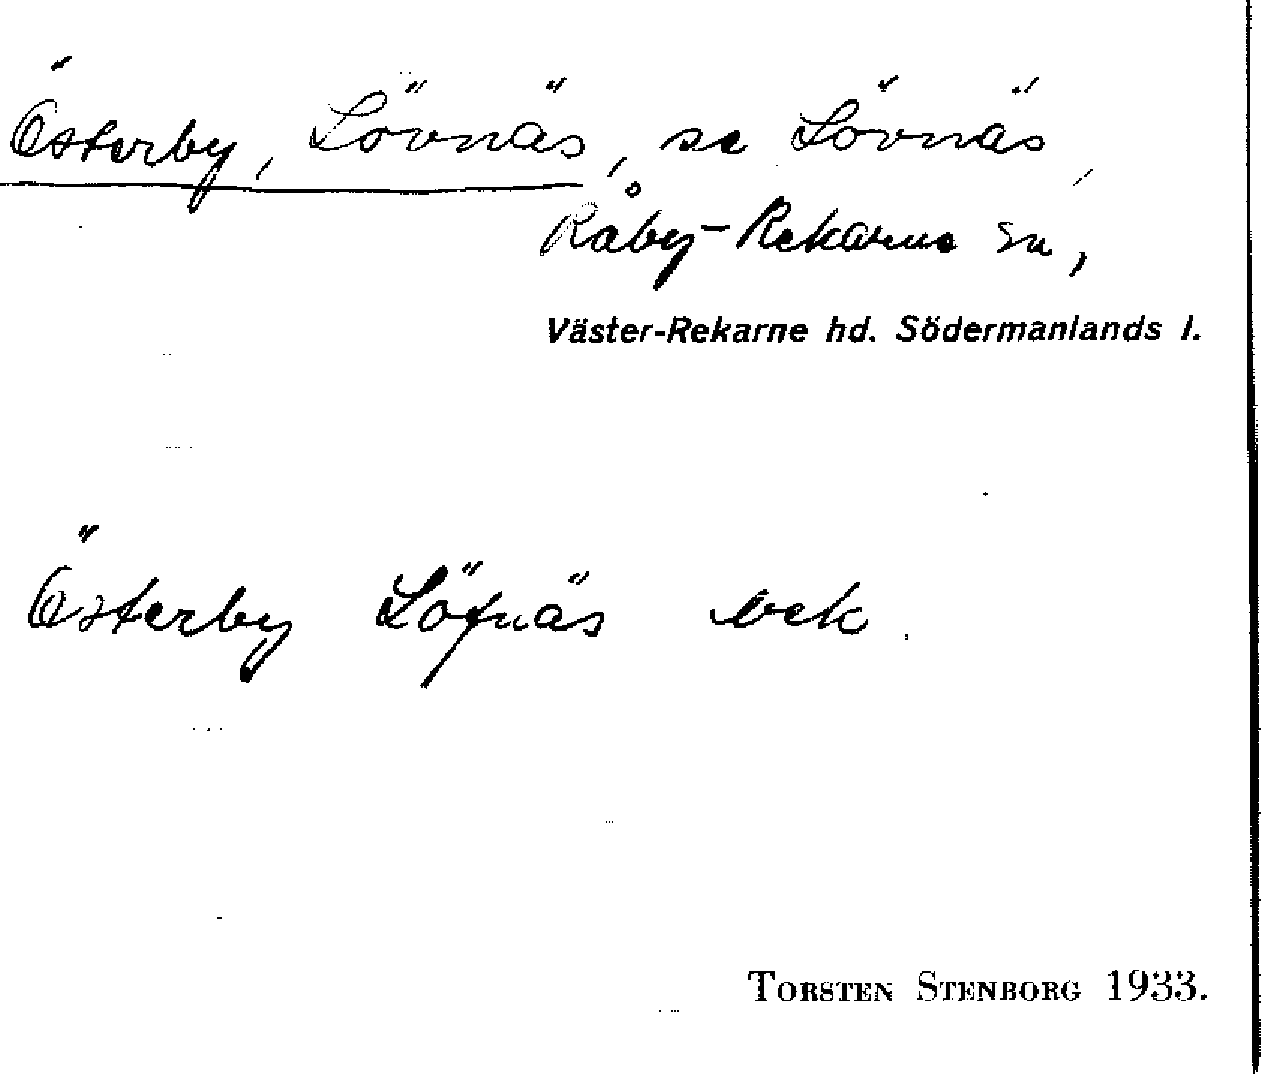 Österby, Lövnäs, se Lövnäs,
Råby-Rekarne sn,
Väster-Rekarne hd. Södermanlands l.
Österby Löfnäs oek
TORSTEN STENBORG 1933.